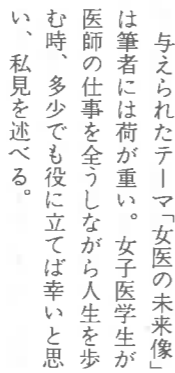 与えられたテーマ「女医の未来像」
は筆者には荷が重い。女子医学生が
医師の仕事を全うしながら人生を歩
む時、多少でも役に立てば幸いと思
い、私見を述べる。